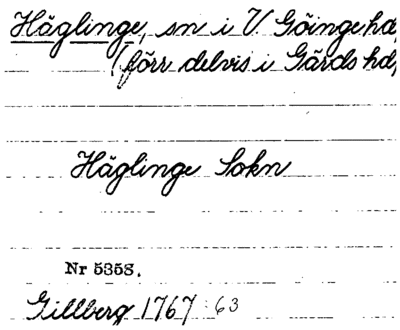 Häglinge, sn i V Göinge hd,
(förr delvis i Gärds hd,
Häglinge Sokn
Nr 5358.
Gillberg 1767 : 63